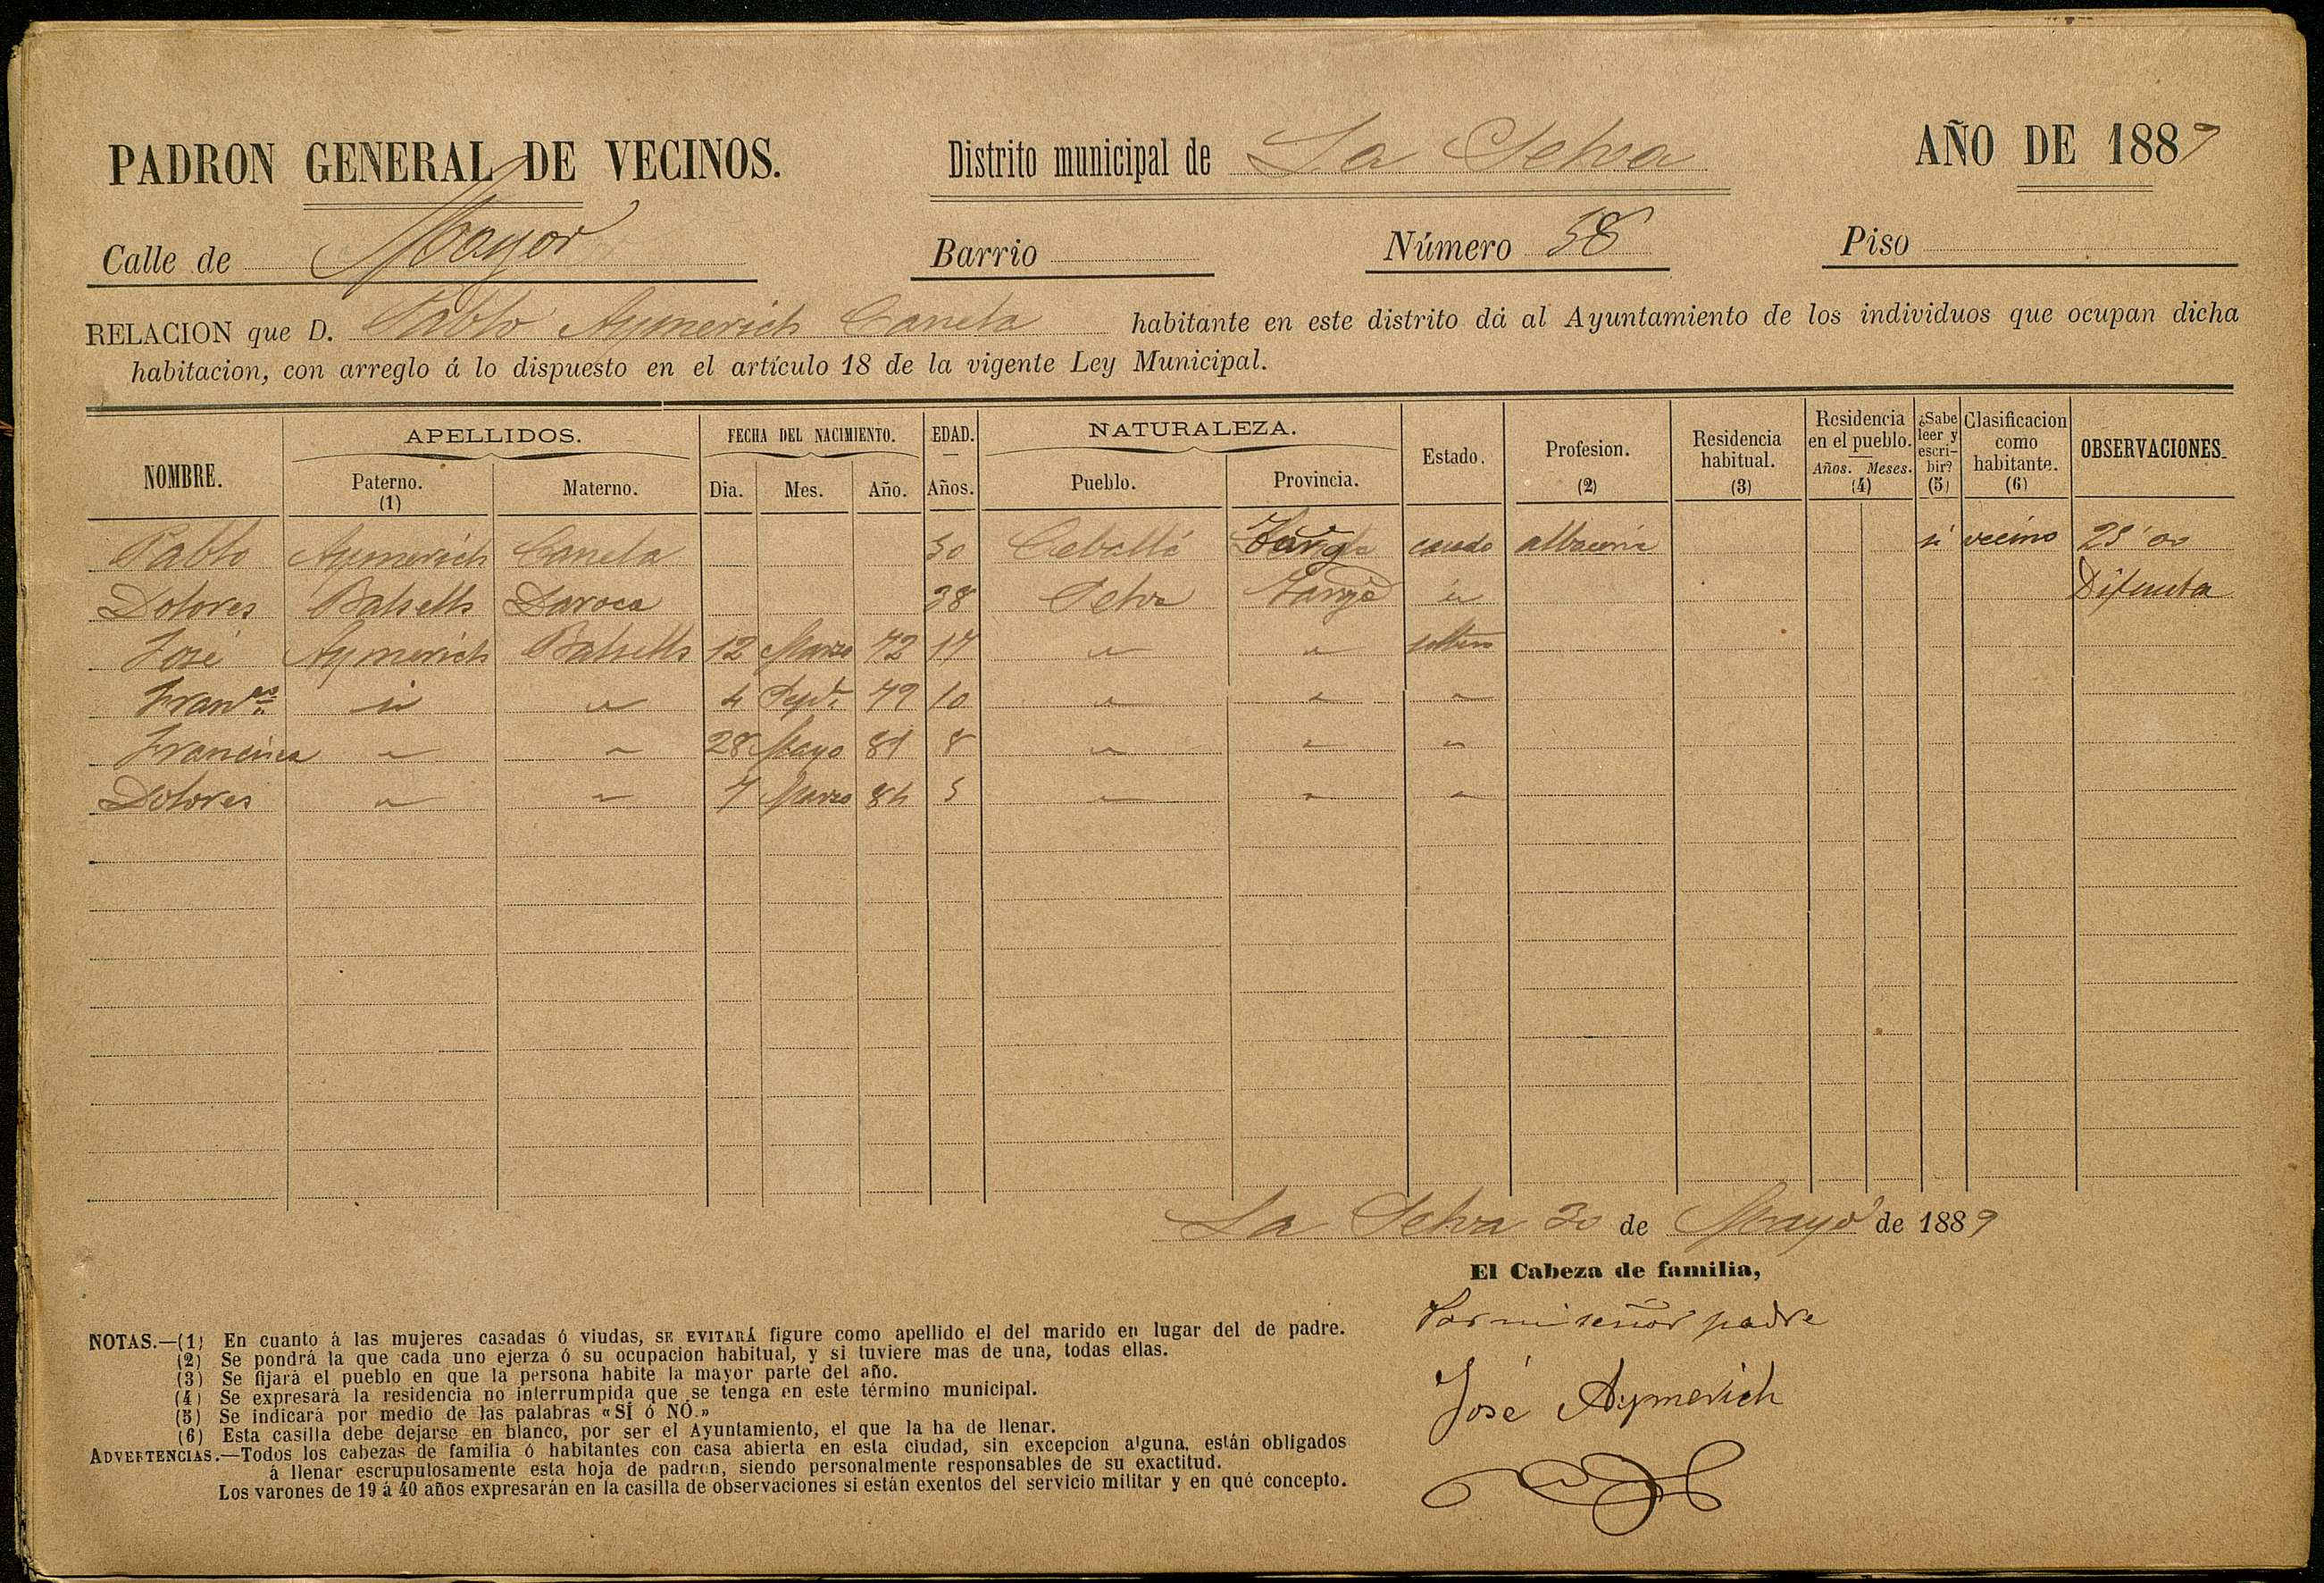 PADRON GENERAL DE VECINOS. Distrito municipal de La Selva AÑO DE 1889
Calle de Mayor Barrio Número 58 Piso
RELACION que D. Pablo Aymerich Canela habitante en este distrito dá al Ayuntamiento de los individuos que ocupan dicha
habitacion, con arreglo á lo dispuesto en el artículo 18 de la vigente Ley Municipal.
NOMBRE. APELLIDOS. Paterno. (1) Materno. FECHA DEL NACIMIENTO. Dia. Mes. Año. EDAD. Años. NATURALEZA. Pueblo. Provincia. Estado. Profesion. (2) Residencia habitual. (3) Residencia en el pueblo. Años. Meses. (4) ¿Sabe leer y escribir? (5) Clasificacion como habitante. (6) OBSERVACIONES.
Pablo Aymerich Canela 50 casado si vecino 25'00
Dolores Balsells Daroca 38 Selva Tarrga id Difunta
José Aymerich Balsells 12 Marzo 72 17 " " soltero
Franco id " 4 Sepe 79 10 " " "
Francisca " " 28 Mayo 81 8 " " "
Dolores " " 7 Marzo 84 5 " " "
La Selva 30 de Mayo de 1889
El Cabeza de familia,
Por mi señor padre
José Aymerich
NOTAS.—(1) En cuanto á las mujeres casadas ó viudas, SE EVITARÁ figure como apellido el del marido en lugar del de padre.
(2) Se pondrá la que cada uno ejerza ó su ocupacion habitual, y si tuviere mas de una, todas ellas.
(3) Se fijará el pueblo en que la persona habite la mayor parte del año.
(4) Se expresará la residencia no interrumpida que se tenga en este término municipal.
(5) Se indicará por medio de las palabras «SÍ ó NÓ.»
(6) Esta casilla debe dejarse en blanco, por ser el Ayuntamiento, el que la ha de llenar.
ADVERTENCIAS.—Todos los cabezas de familia ó habitantes con casa abierta en esta ciudad, sin excepcion alguna, están obligados
á llenar escrupulosamente esta hoja de padron, siendo personalmente responsables de su exactitud.
Los varones de 19 á 40 años expresarán en la casilla de observaciones si están exentos del servicio militar y en qué concepto.